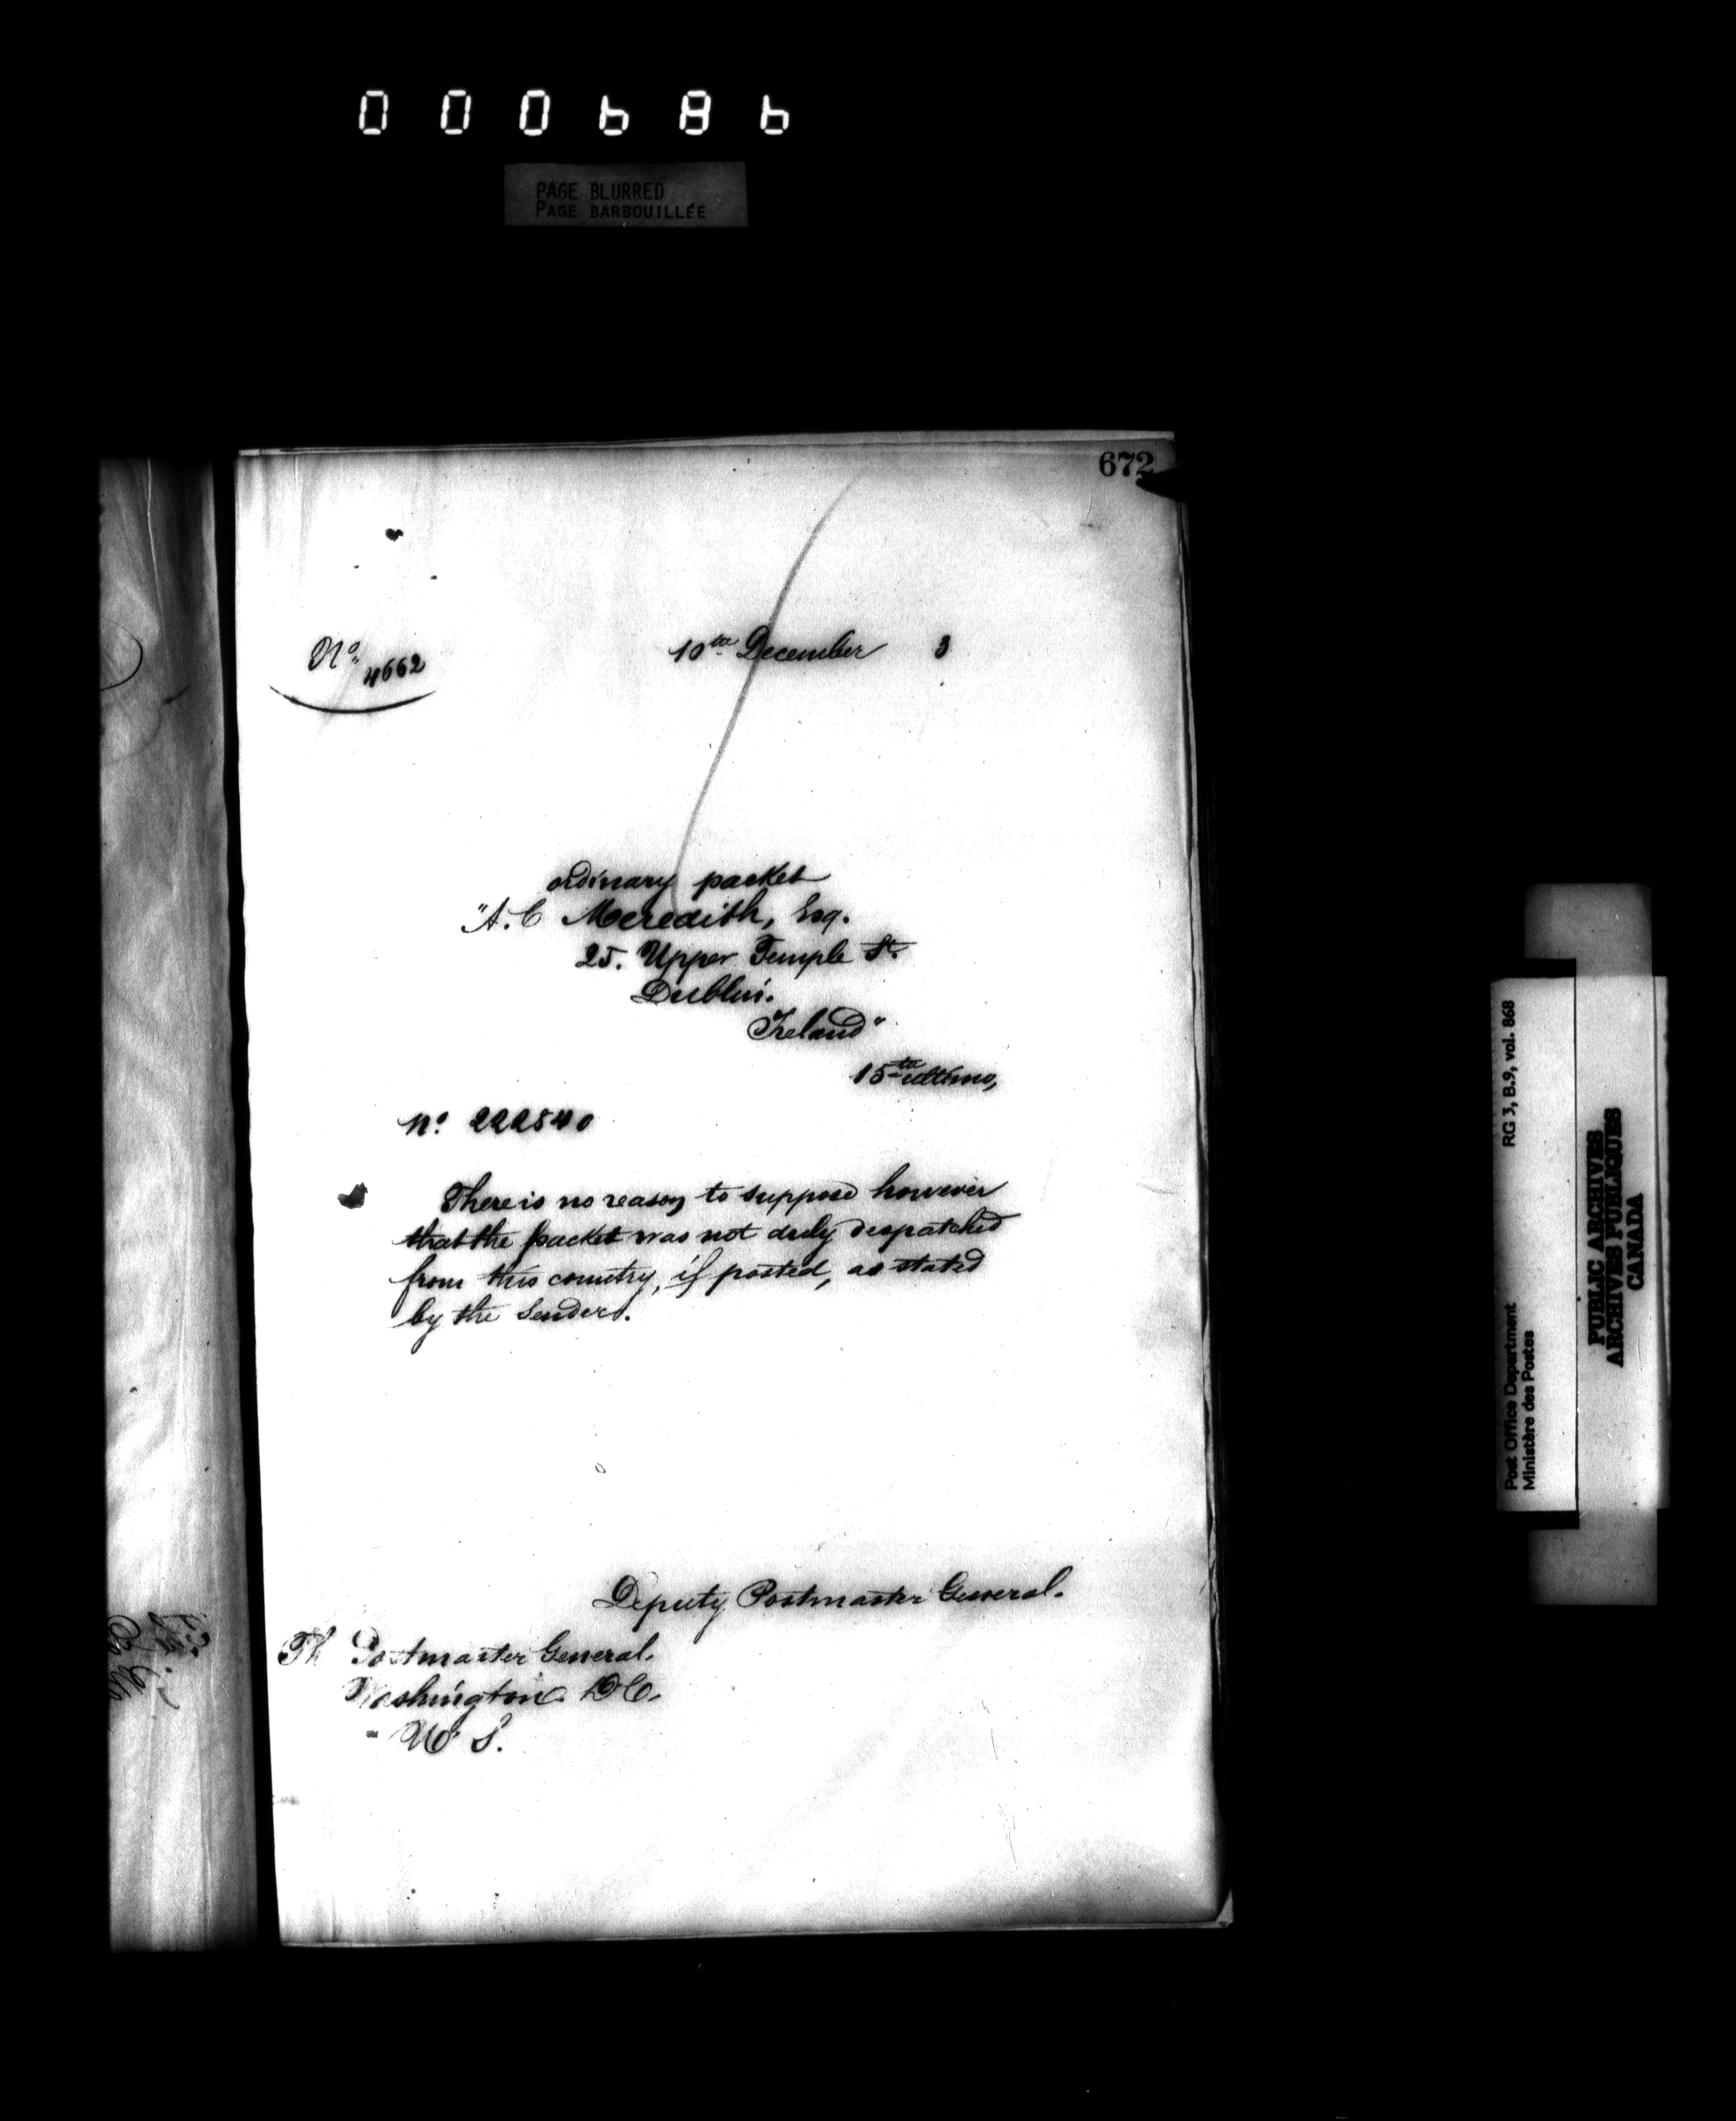 000686
PAGE BLURRED
PAGE BARBOUILLÉE
672
No. 4662
10th December 3
ordinary packet
"A. C Meredith, Esq.
25. Upper Temple St.
Dublin.
Ireland"
15th ultimo,
No. 222540
There is no reason to suppose however
that the packet was not duly despatched
from this country, if posted, as stated
by the sender.
Deputy Postmaster General.
Th Postmaster General.
Washington. D.C.
U. S.
RG 3, B.9, vol. 868
Post Office Department
Ministère des Postes
PUBLIC ARCHIVES
ARCHIVES PUBLIQUES
CANADA